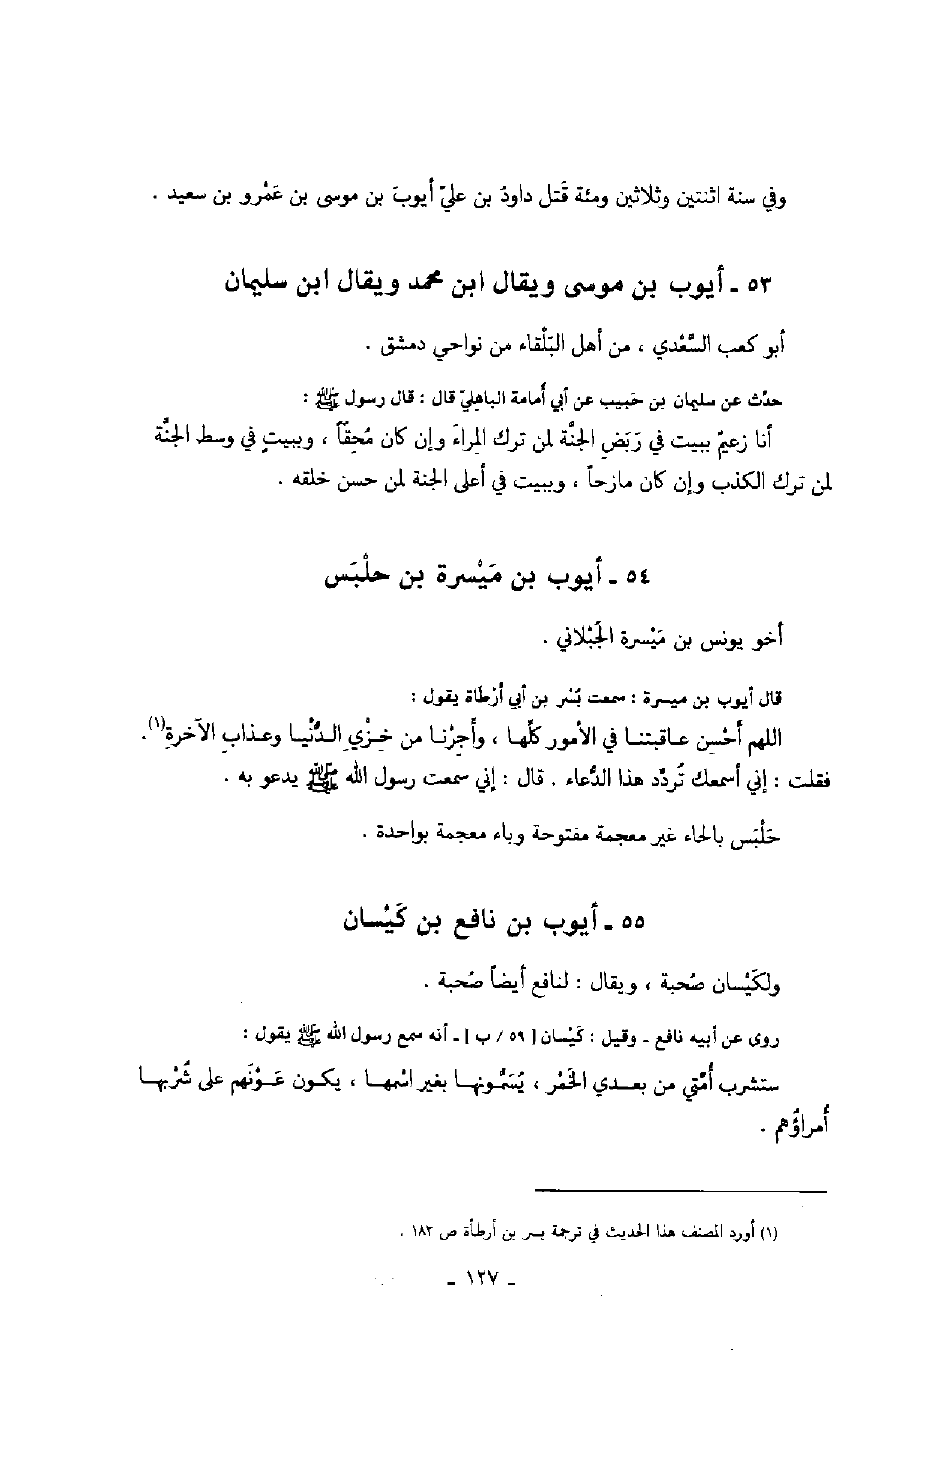 وفي سنة اثنتين وثلاثين ومئة قَتل داودُ بن عليّ أيوبَ بن موسى بن عَمْرو بن سعيد .
٥٣ ـ أيوب بن موسى ويقال ابن محمد ويقال ابن سليمان
أبو كعب السَّعْدي ، من أهل البَلْقاء من نواحي دمشق .
حدّث عن سليمان بن حَبيب عن أبي أُمامة الباهليّ قال : قال رسول ﷺ :
أنا زعيمٌ ببيت في رَبَضِ الجنَّة لمن ترك المِراءَ وإن كان مُحِقّاً ، وببيتٍ في وسط الجنَّة
لمن ترك الكذب وإن كان مازحاً ، وببيت في أعلى الجنة لمن حسن خلقه .
٥٤ ـ أيوب بن مَيْسرة بن حلْبَس
أخو يونس بن مَيْسرة الجُبْلاني .
قال أيوب بن ميسرة : سمعت بُسْر بن أبي أرْطاة يقول :
اللهم أحْسِن عاقبتنا في الأمور كلِّها ، وأجِرْنا من خِزْيِ الدُّنْيا وعذابِ الآخرة(١).
فقلت : إني أسمعك تُردّد هذا الدُّعاء . قال : إني سمعت رسول الله ﷺ يدعو به .
حَلْبَس بالحاء غير معجمة مفتوحة وباء معجمة بواحدة .
٥٥ ـ أيوب بن نافع بن كَيْسان
ولكَيْسان صُحبة ، ويقال : لنافع أيضاً صُحبة .
روى عن أبيه نافع ـ وقيل : كَيْسان [ ٥٩ / ب ] ـ أنه سمع رسول الله ﷺ يقول :
ستشرب أُمّتي من بعدي الخَمْر ، يُسَمُّونها بغير اسْمها ، يكون عَوْنَهم على شُرْبها
أُمراؤُهم .
(١) أورد المصنف هذا الحديث في ترجمة بسر بن أرطأة ص ١٨٢ .
ـ ١٢٧ ـ